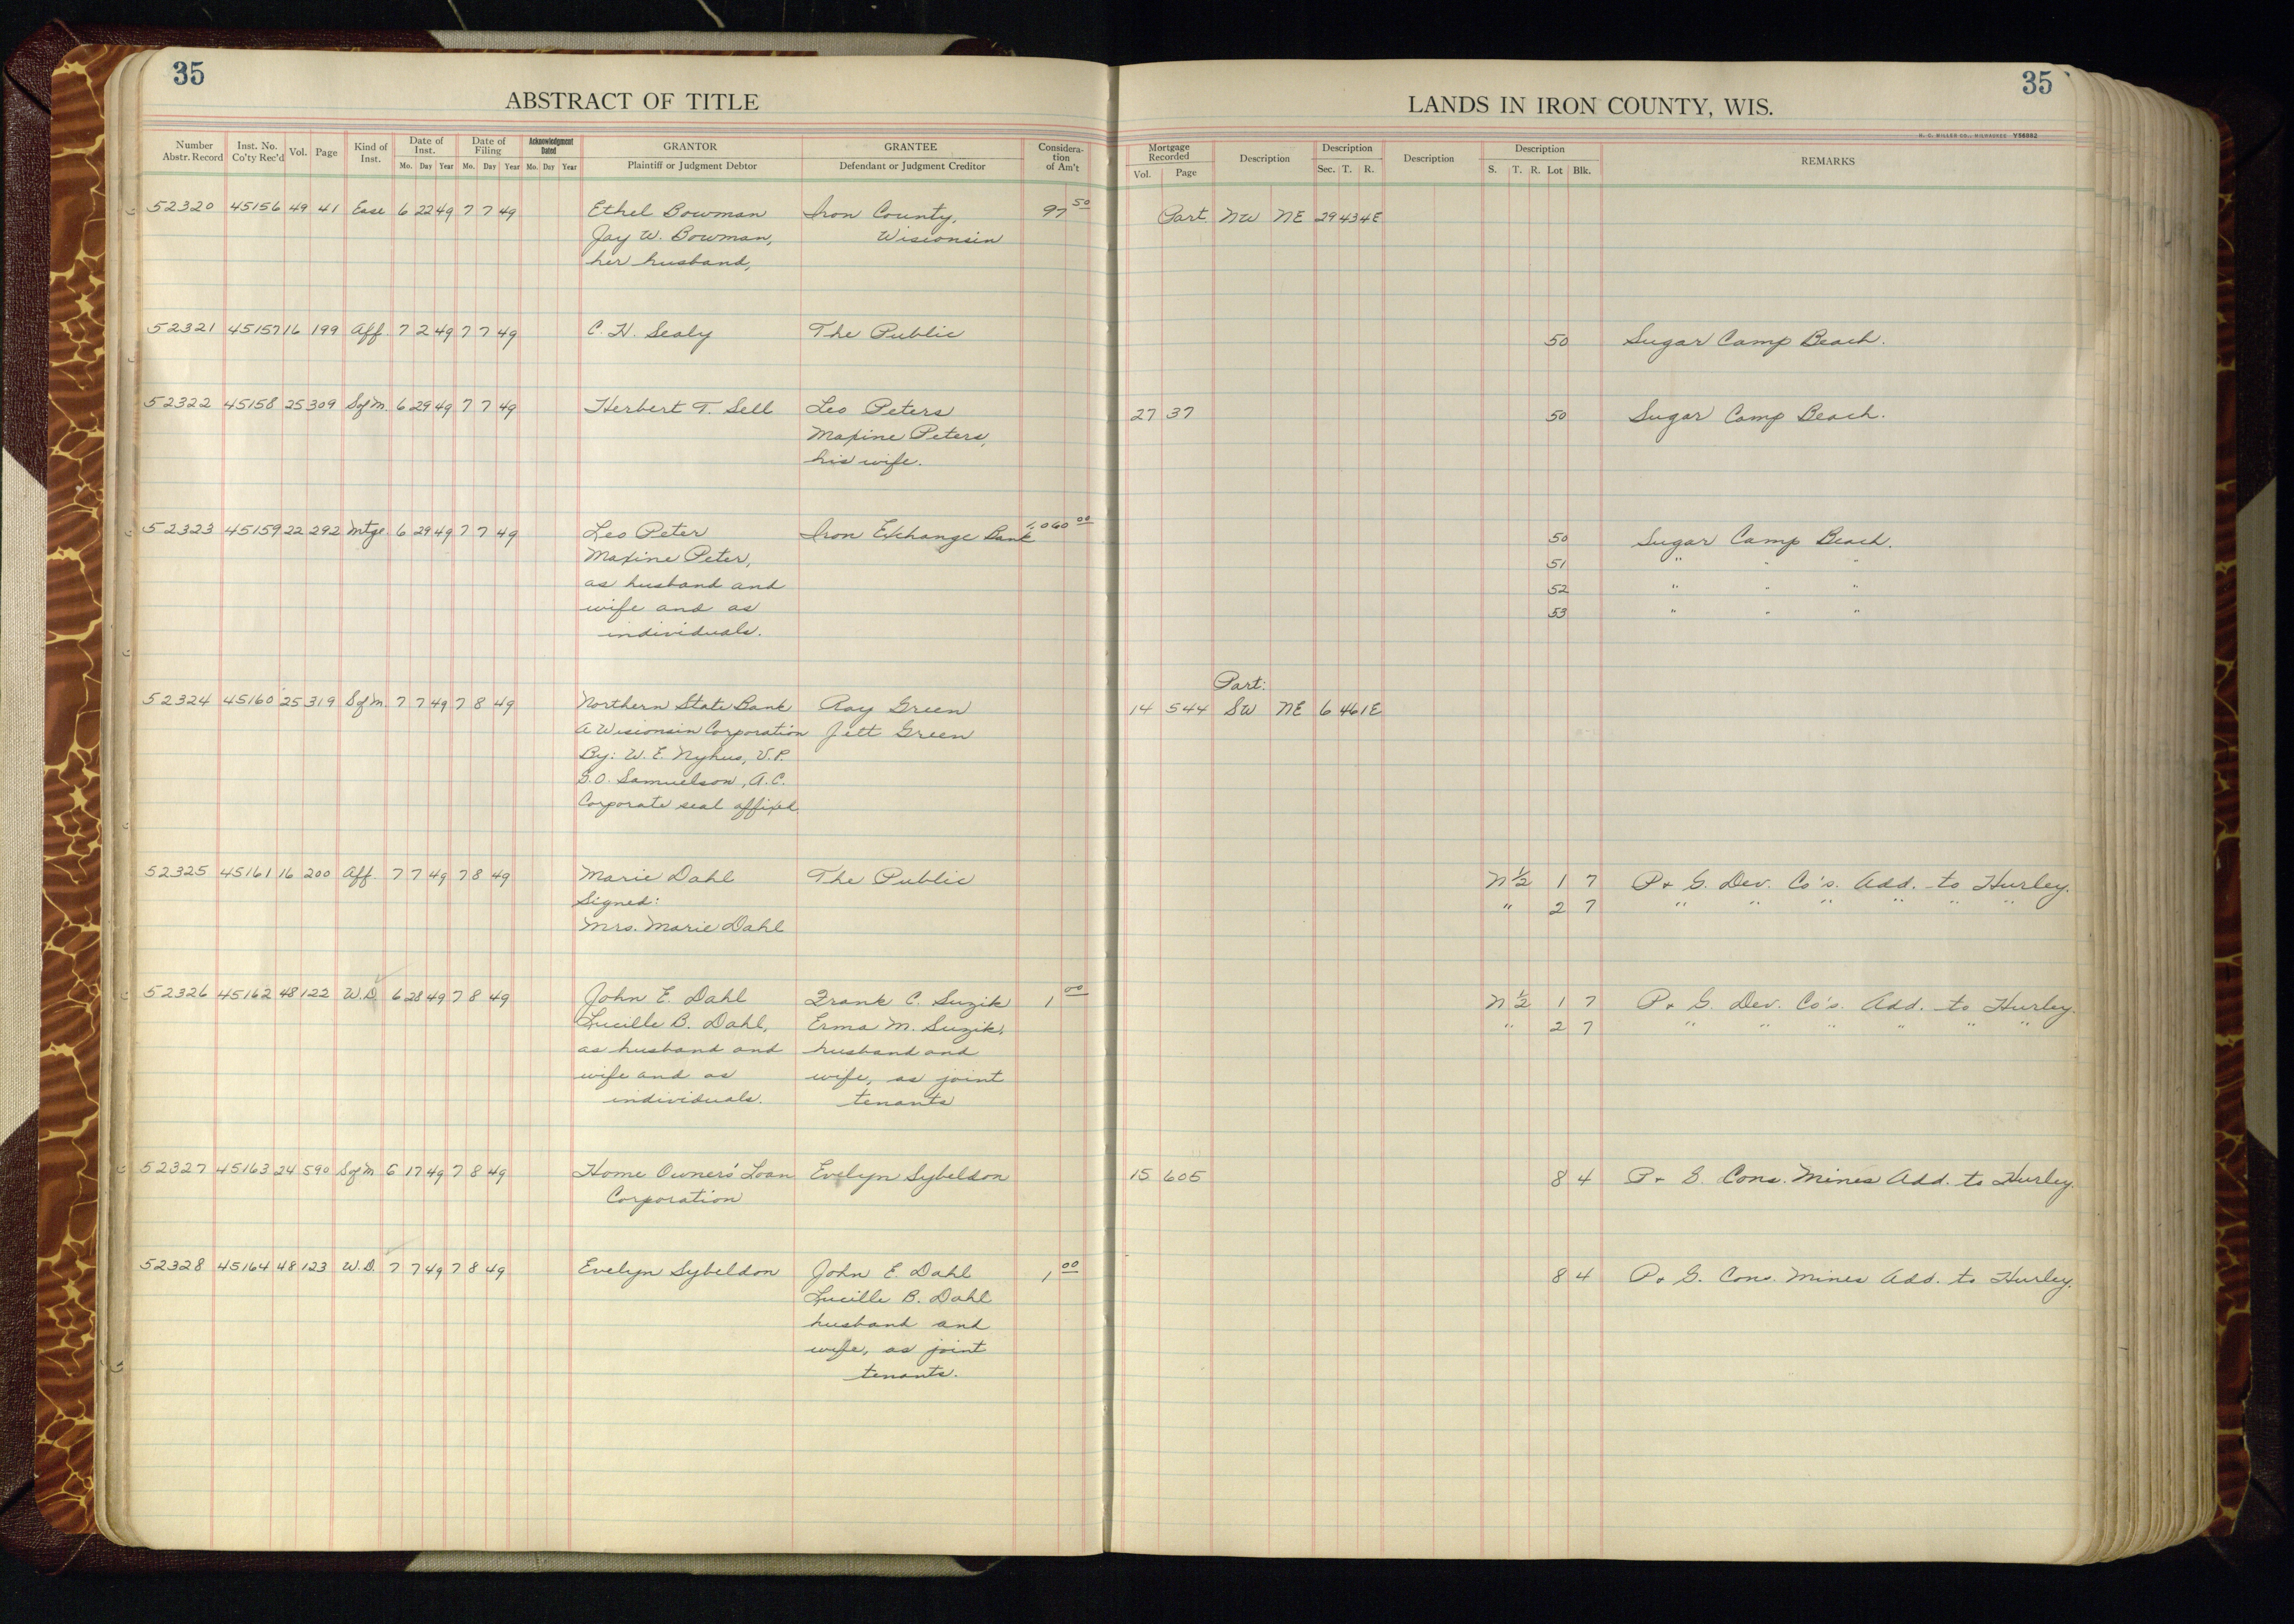 35
ABSTRACT OF TITLE
Number Abstr. Record Inst. No. Co'ty Rec'd Vol. Page Kind of Inst. Date of Inst. Mo. Day Year Date of Filing Mo. Day Year Acknowledgment Dated Mo. Day Year GRANTOR Plaintiff or Judgment Debtor GRANTEE Defendant or Judgment Creditor Considera-tion of Am't
52320 45156 49 41 Ease 6 22 49 7 7 49 Ethel Bowman Iron County, 97 50
Jay W. Bowman, Wisconsin
her husband,
52321 45157 16 199 Aff. 7 2 49 7 7 49 C. H. Sealy The Public
52322 45158 25 309 S of M. 6 29 49 7 7 49 Herbert T. Sell Leo Peters
Maxine Peters,
his wife.
52323 45159 22 292 Mtge. 6 29 49 7 7 49 Leo Peter Iron Exchange Bank 1,060 00
Maxine Peter,
as husband and
wife and as
individuals.
52324 45160 25 319 S of M 7 7 49 7 8 49 Northern State Bank Ray Green
A Wisconsin Corporation Jett Green
By: W. E. Nyhus, V.P.
G.O. Samuelson, A.C.
Corporate seal affixed.
52325 45161 16 200 Aff. 7 7 49 7 8 49 Marie Dahl The Public
Signed:
Mrs. Marie Dahl
52326 45162 48 122 W.D. 6 28 49 7 8 49 John E. Dahl Frank C. Suzik 1 00
Lucille B. Dahl, Erma M. Suzik,
as husband and husband and
wife and as wife, as joint
individuals. tenants
52327 45163 24 590 S of M 6 17 49 7 8 49 Home Owners' Loan Evelyn Sybeldon
Corporation
52328 45164 48 123 W.D. 7 7 49 7 8 49 Evelyn Sybeldon John E. Dahl 1 00
Lucille B. Dahl
husband and
wife, as joint
tenants.
35
LANDS IN IRON COUNTY, WIS.
H. C. MILLER CO., MILWAUKEE Y56882
Mortgage Recorded Vol. Page Description Description Sec. T. R. Description Description S. T. R. Lot Blk. REMARKS
Part NW NE 29 43 4E
50 Sugar Camp Beach.
27 37 50 Sugar Camp Beach.
50 Sugar Camp Beach.
51 " " "
52 " " "
53 " " "
Part:
14 544 SW NE 6 46 1E
N ½ 1 7 P. & G. Dev. Co's. Add. to Hurley.
" 2 7 " " " " " "
N ½ 1 7 P. & G. Dev. Co's. Add. to Hurley.
" 2 7 " " " " " "
15 605 8 4 P. & G. Cons. Mines Add. to Hurley.
8 4 P. & G. Cons. Mines Add. to Hurley.